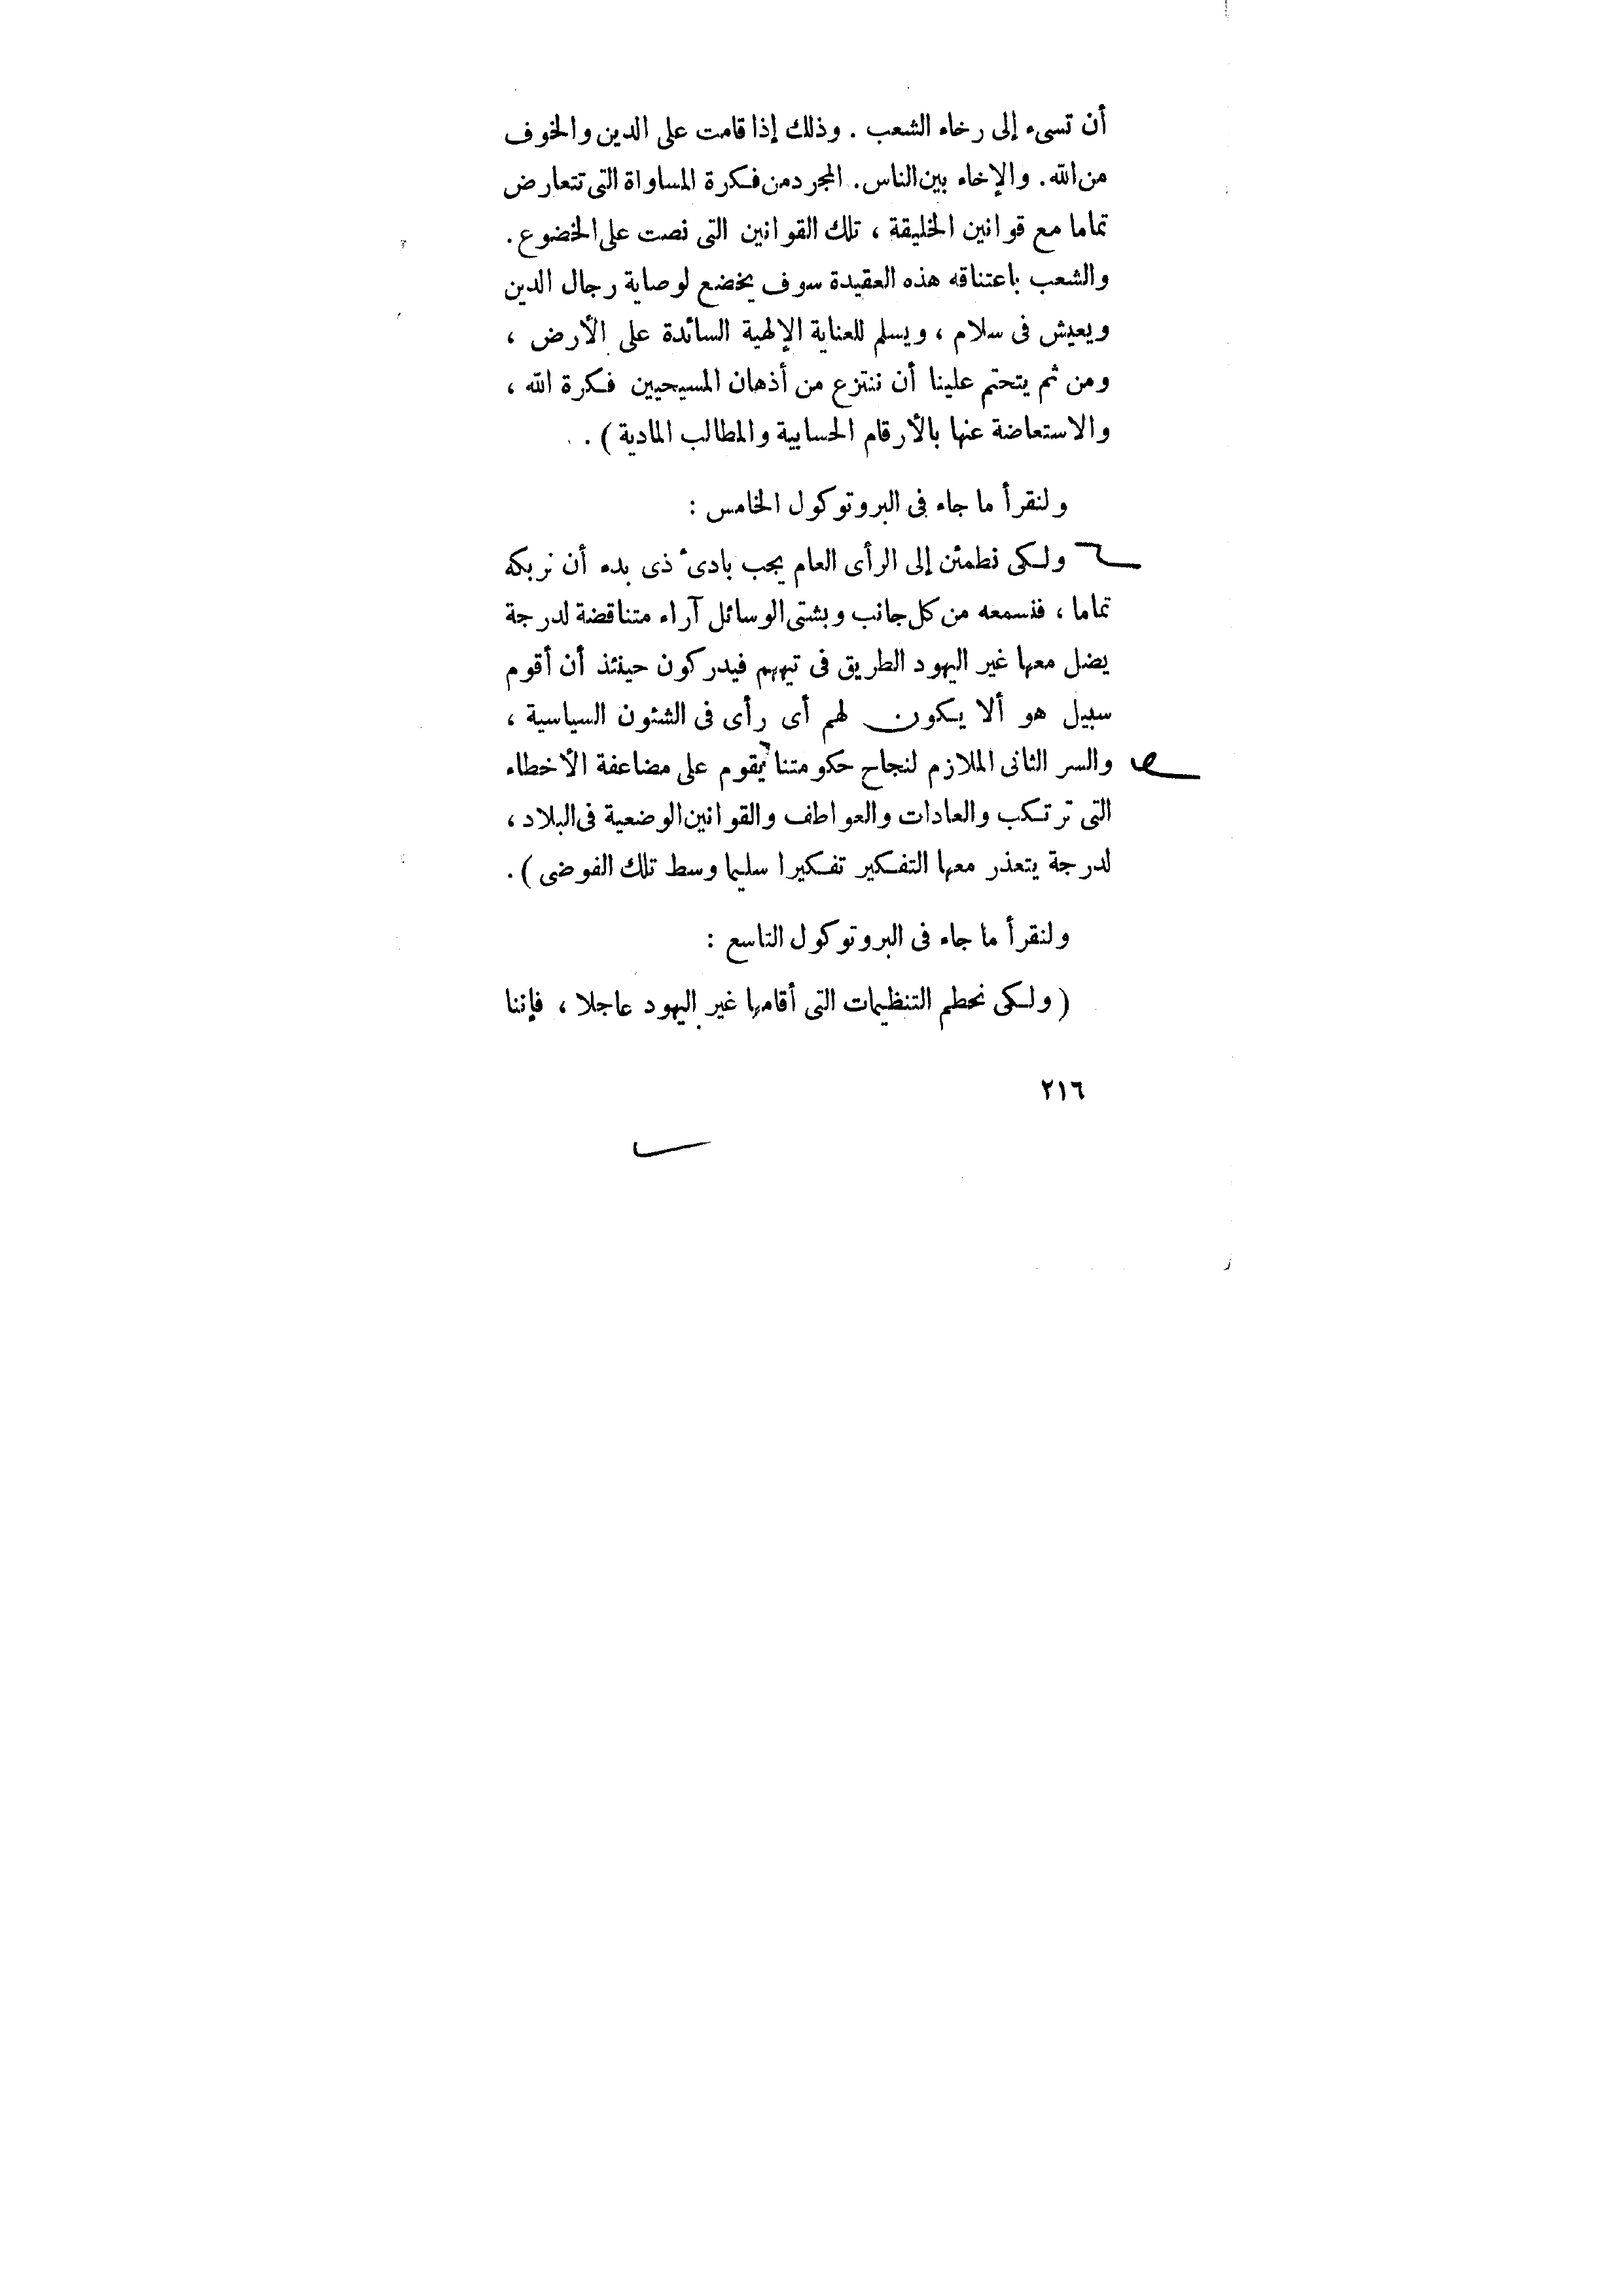 أن تسىء إلى رخاء الشعب . وذلك إذا قامت على الدين والخوف
من الله. والإخاء بين الناس. المجرد من فكرة المساواة التى تتعارض
تماما مع قوانين الخليقة ، تلك القوانين التى نصت على الخضوع .
والشعب باعتناقه هذه العقيدة سوف يخضع لوصاية رجال الدين
ويعيش فى سلام ، ويسلم للعناية الإلهية السائدة على الأرض ،
ومن ثم يتحتم علينا أن ننتزع من أذهان المسيحيين فكرة الله ،
والاستعاضة عنها بالأرقام الحسابية والمطالب المادية ) .
ولنقرأ ما جاء فى البروتوكول الخامس :
ولكى نطمئن إلى الرأى العام يجب بادىء ذى بدء أن نربكه
تماما ، فنسمعه من كل جانب وبشتى الوسائل آراء متناقضة لدرجة
يضل معها غير اليهود الطريق فى تيههم فيدركون حينئذ أن أقوم
سبيل هو ألا يكون لهم أى رأى فى الشئون السياسية ،
والسر الثانى الملازم لنجاح حكومتنا يقوم على مضاعفة الأخطاء
التى ترتكب والعادات والعواطف والقوانين الوضعية فى البلاد ،
لدرجة يتعذر معها التفكير تفكيرا سليما وسط تلك الفوضى ) .
ولنقرأ ما جاء فى البروتوكول التاسع :
( ولكى نحطم التنظيمات التى أقامها غير اليهود عاجلا ، فإننا
٢١٦